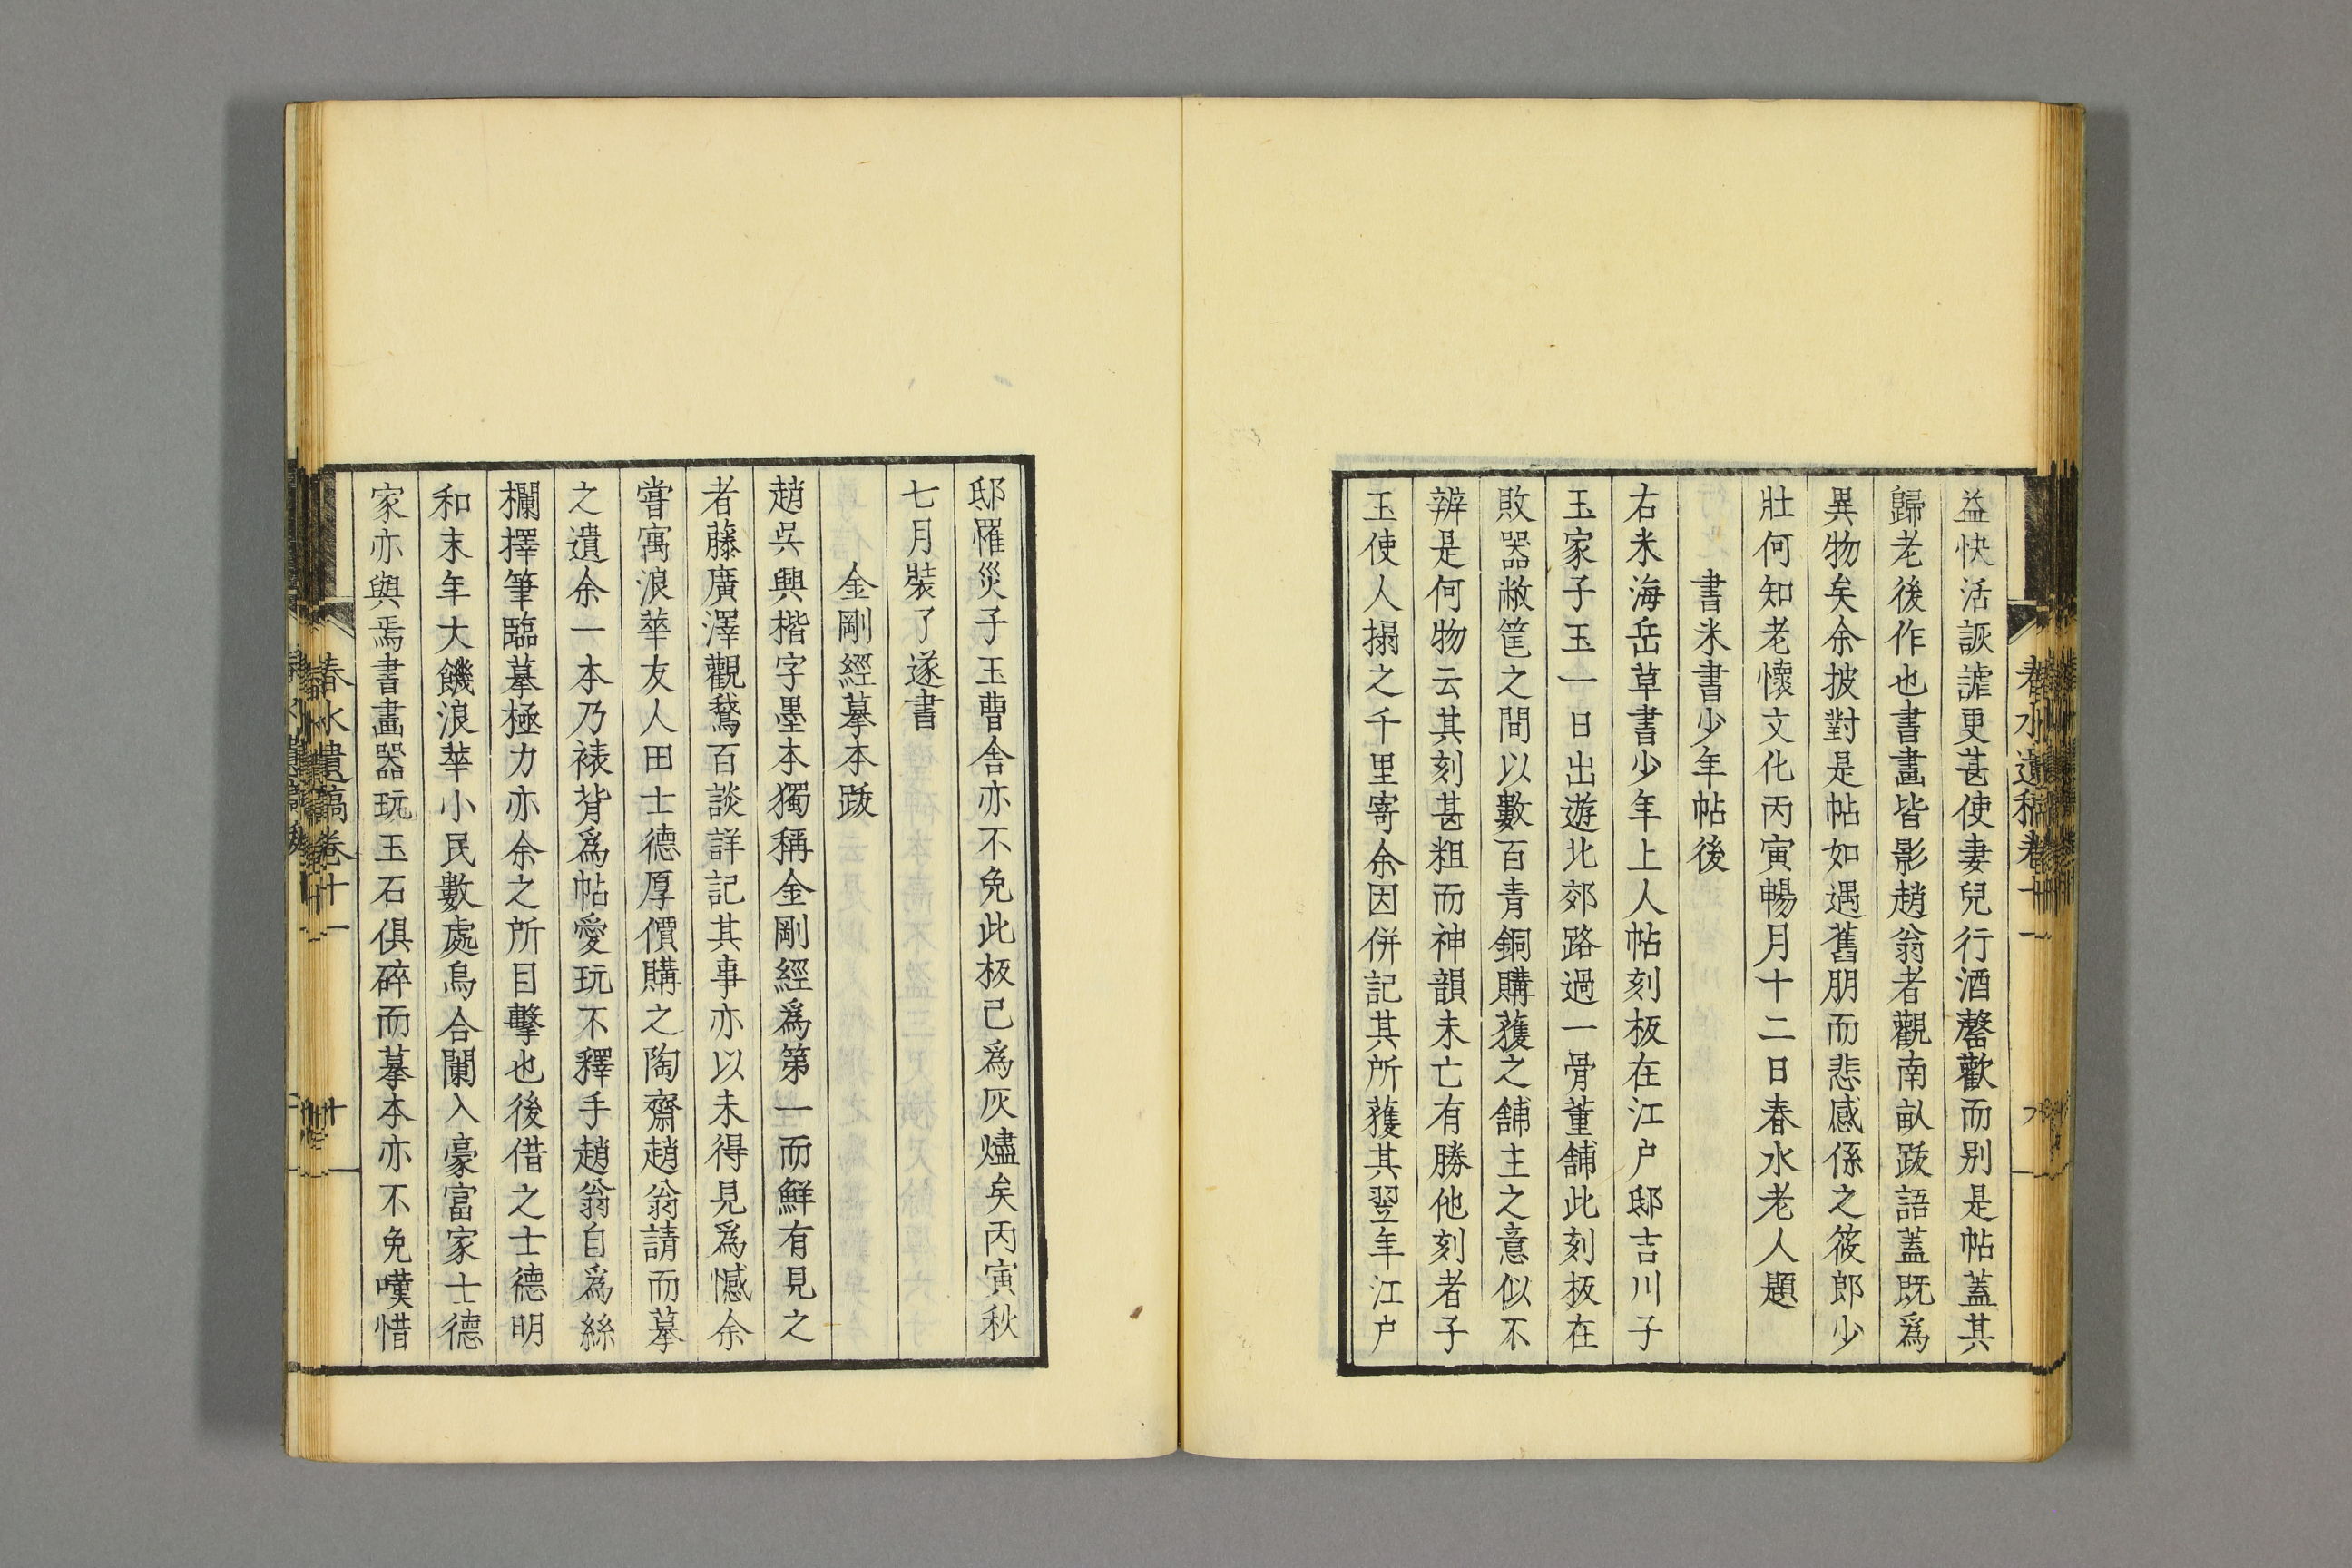 益快活詼謔更甚使妻兒行酒罄歡而别是帖蓋其
歸老後作也書畫皆影趙翁者觀南畝跋語蓋既爲
異物矣余披對是帖如遇舊朋而悲感係之筱郎少
壯何知老懷文化丙寅暢月十二日春水老人題
書米書少年帖後
右米海岳草書少年上人帖刻板在江户邸吉川子
玉家子玉一日出遊北郊路過一骨董舖此刻板在
敗器敝筐之間以數百青銅購蒦之舖主之意似不
辨是何物云其刻甚粗而神韻未亡有勝他刻者子
玉使人搨之千里寄余因併記其所蒦其翌年江户
邸罹災子玉曹舍亦不免此板已爲灰燼矣丙寅秋
七月裝了遂書
金剛經摹本跋
趙吳興楷字墨本獨稱金剛經爲第一而鮮有見之
者藤廣澤觀鵞百談詳記其事亦以未得見爲憾余
嘗寓浪華友人田士德厚價購之陶齋趙翁請而摹
之遺余一本乃裱背爲帖愛玩不釋手趙翁自爲絲
欄擇筆臨摹極力亦余之所目擊也後借之士德明
和末年大饑浪華小民數處烏合闌入豪富家士德
家亦與焉書畫器玩玉石俱碎而摹本亦不免嘆惜
春水遺稿卷十一